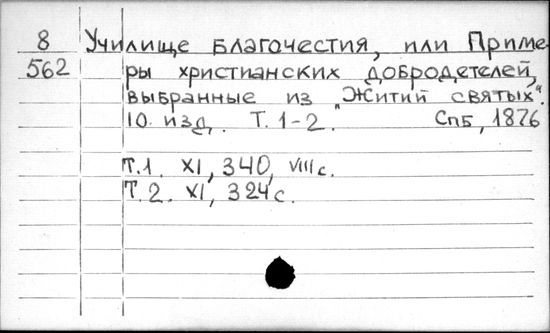 8 Училище благочестия, или Приме-
562 ры христианских добродетелей,
выбранные из "Житий святых".
10 изд. Т. 1-2. Спб, 1876
Т.1. XI, 340, VIII с.
Т.2. XI, 324 с.